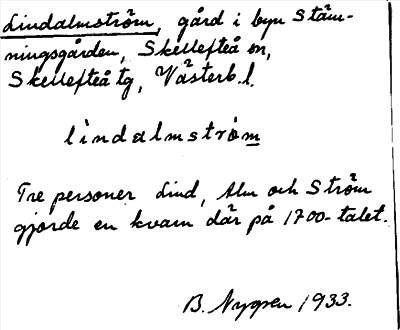 Lindalmström, gård i byn Stäm-
ningsgården, Skellefteå sn,
Skellefteå tg, Västerb. l.
lindalmström
Tre personer Lind, Alm och Ström
gjorde en kvarn där på 1700-talet.
B. Nygren 1933.